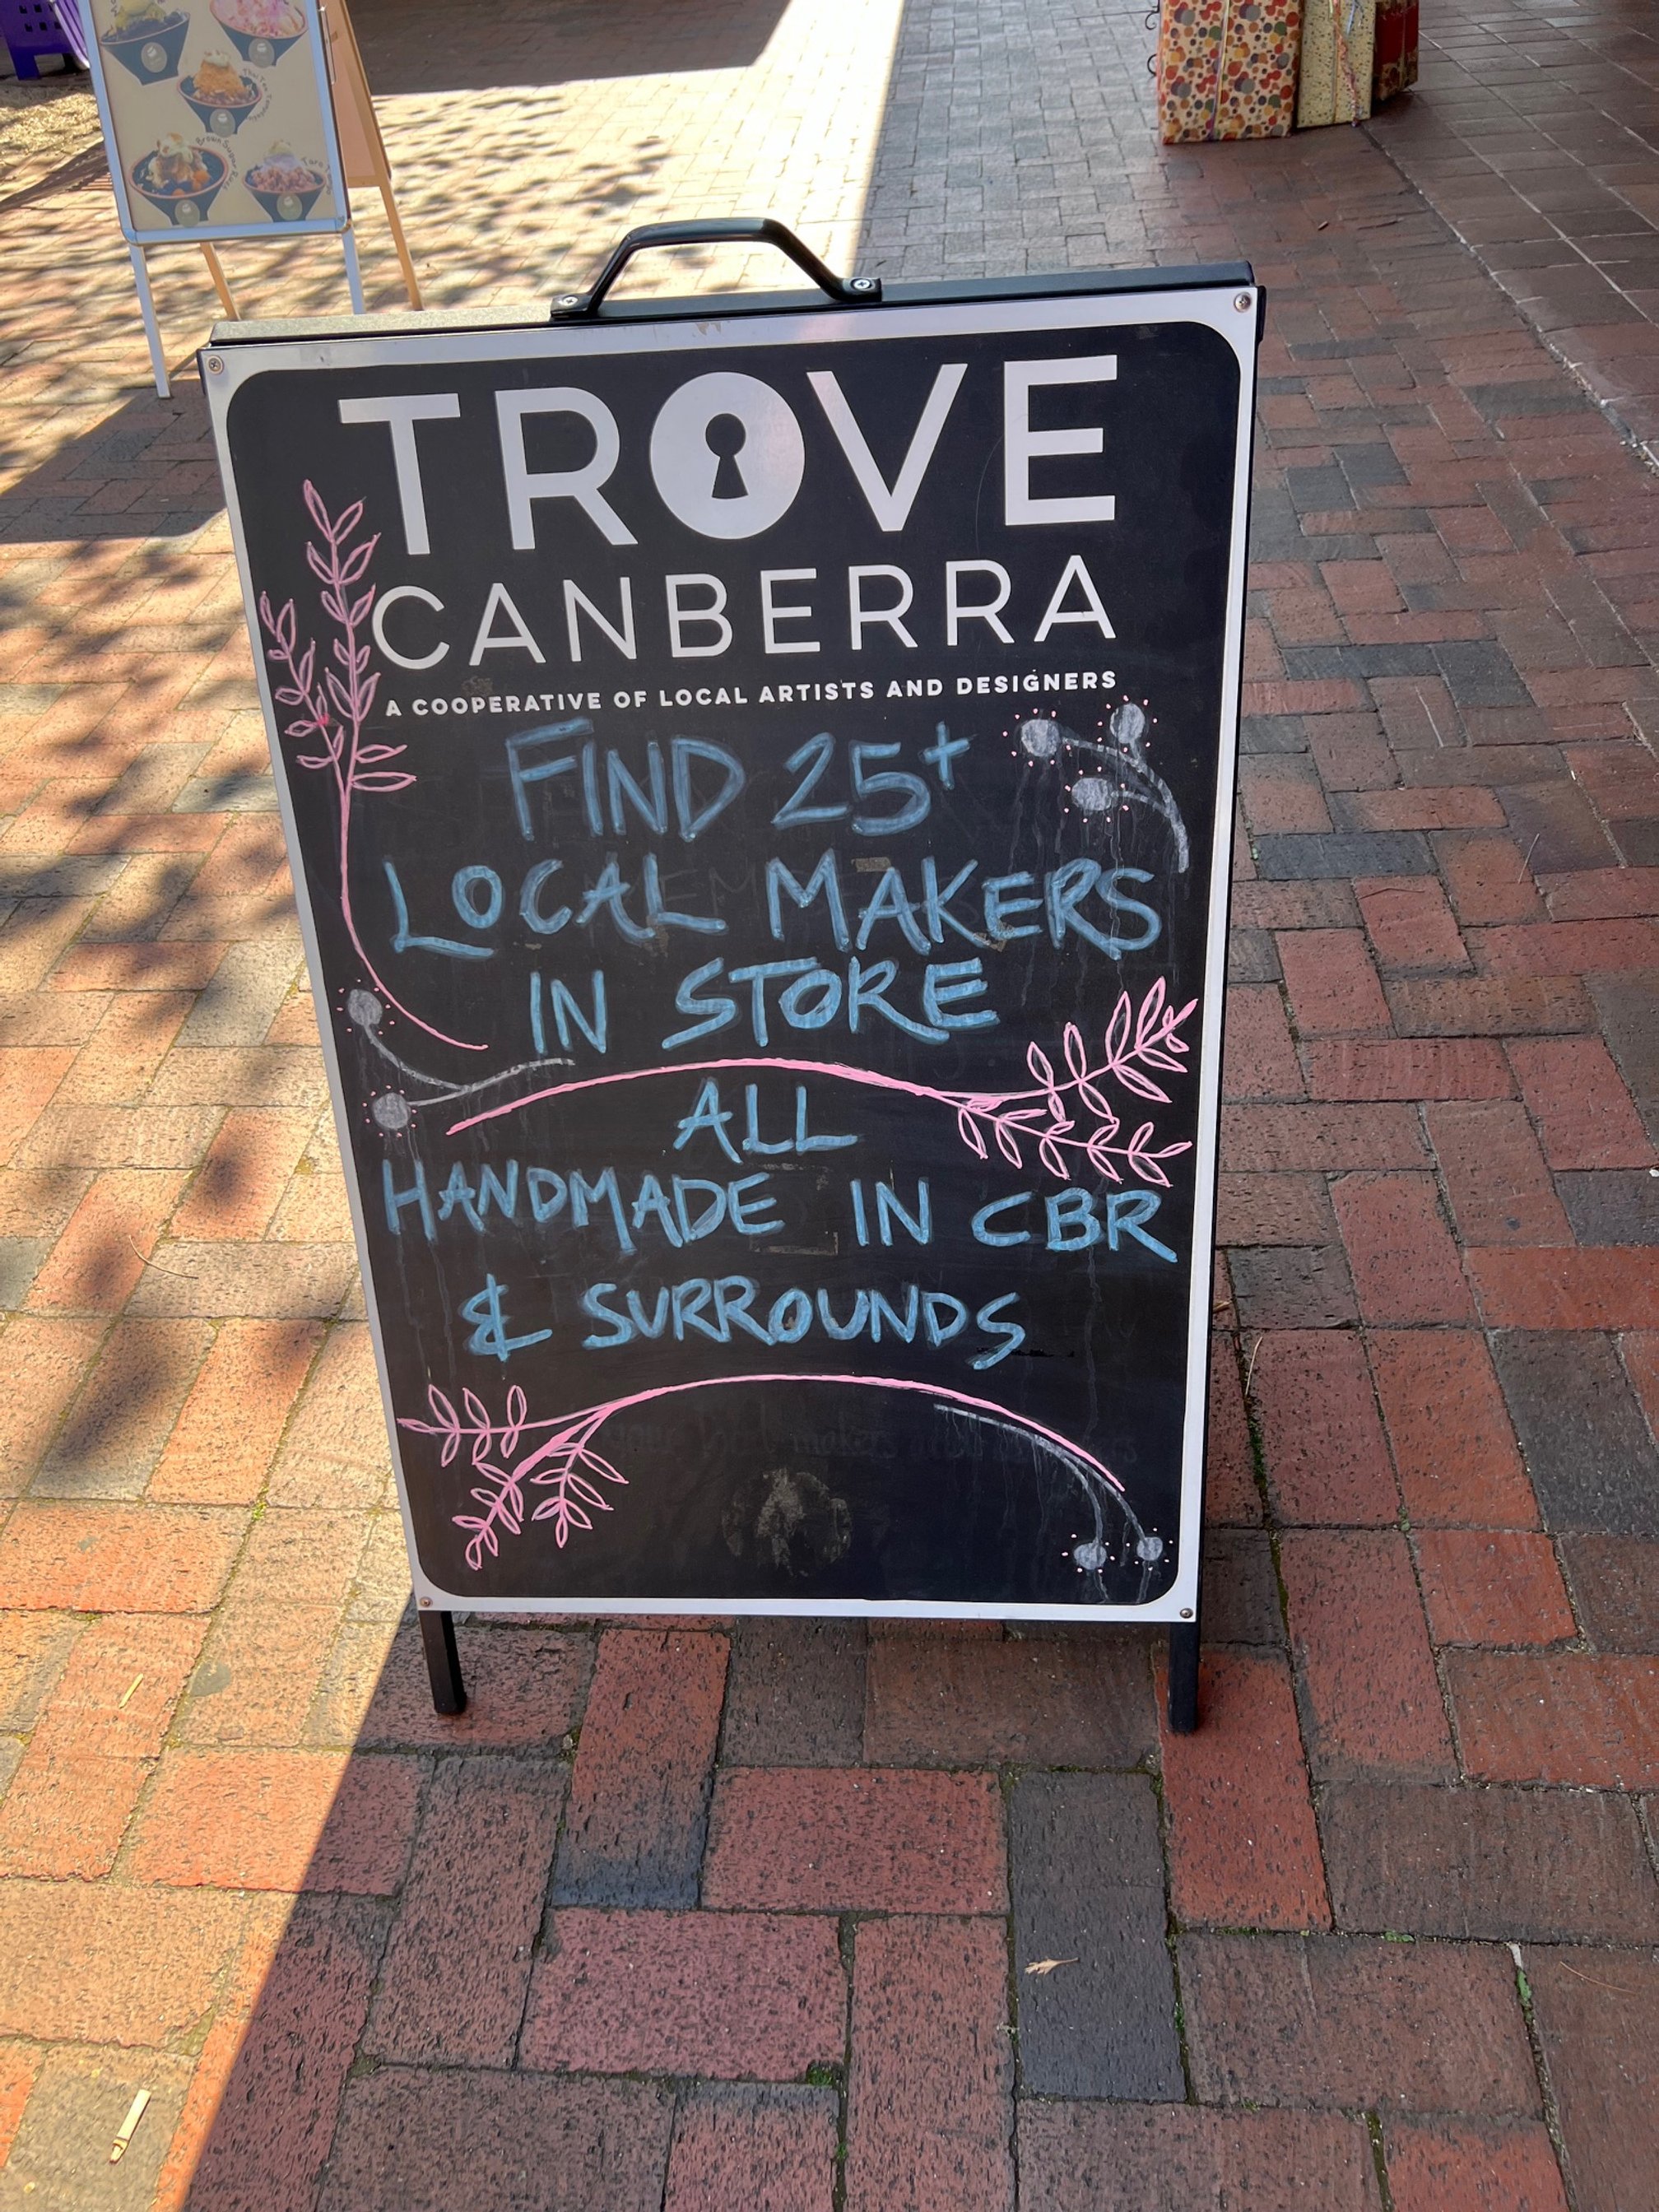 TROVE
CANBERRA
A COOPERATIVE OF LOCAL ARTISTS AND DESIGNERS
FIND 25+
LOCAL MAKERS
IN STORE
ALL
HANDMADE IN CBR
& SURROUNDS